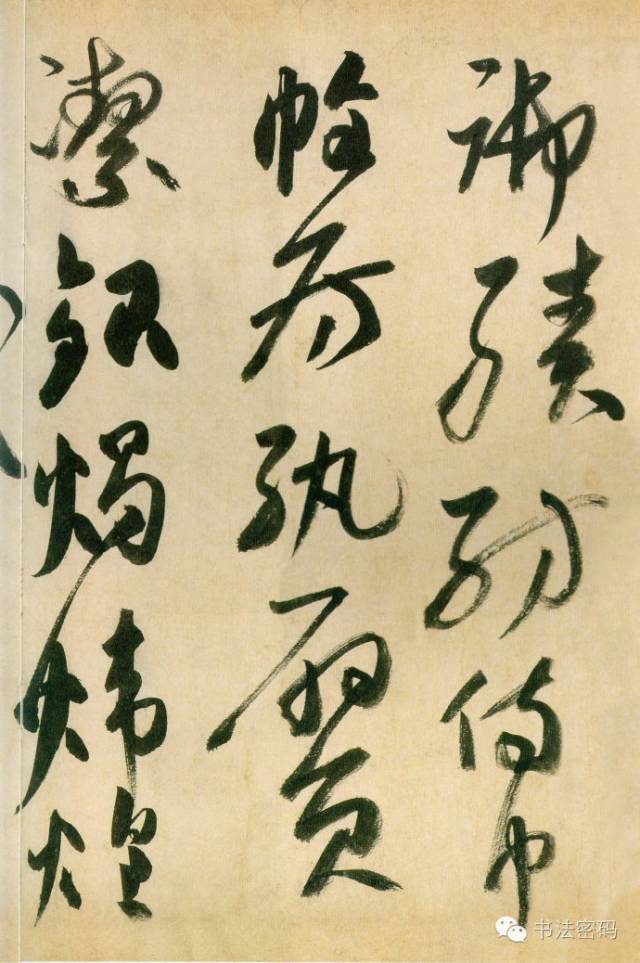 御績紡侍巾
帷房紈扇員
潔銀燭煒煌
书法密码